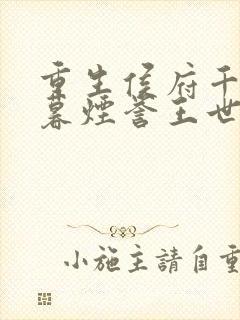 重生侯府千
暮煙譽王世
小施主請自重